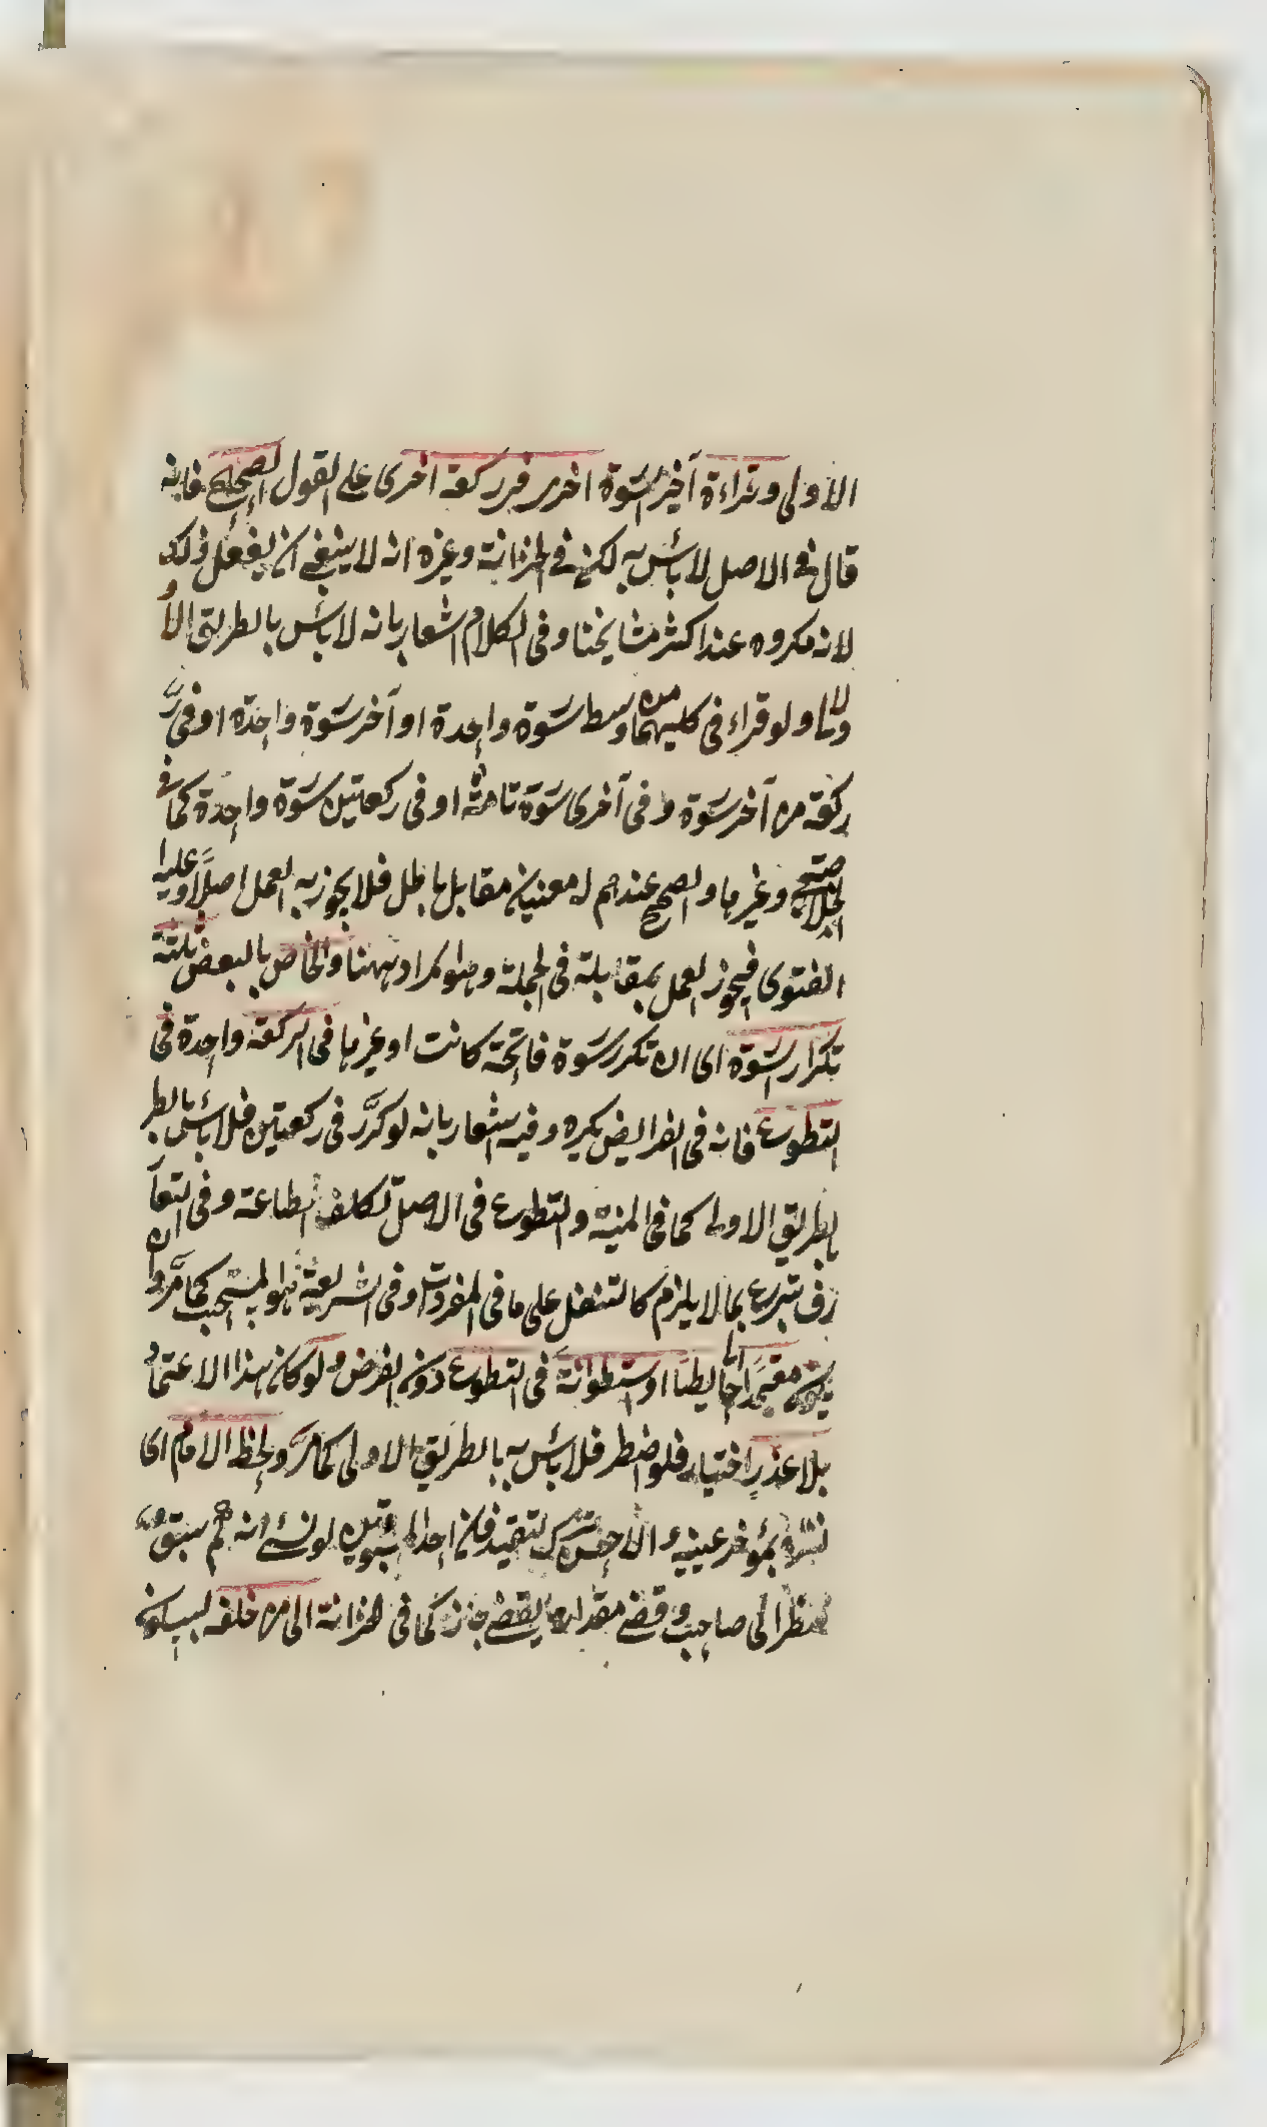 الاولى وقراءة آخر السورة اخرى في ركعة اخرى على القول الصحيح فانه
قال في الاصل لا بأس به لكن في الخزانة وغيره انه لا ينبغي ان يفعل ذلك
لانه مكروه عند اكثر مشايخنا وفى الكلام اشعار بانه لا بأس بالطريق الأ
ولى ولو قراء فى كليهما من وسط سورة واحدة او آخر سورة واحدة او فى
ركعة من آخر سورة وفى آخرى سورة تامة او فى ركعتين سورة واحدة كما في
الخلاصة وغيرها والصحيح عندهم له معنيان مقابل باطل فلا يجوز به العمل اصلا وعليه
الفتوى فيجوز العمل بمقابلة فى الجملة وهو المراد ههنا والخاص بالبعض ثلثة
تكرار السورة اى ان تكرر سورة فاتحة كانت او غيرها فى الركعة واحدة فى
التطوع فانه فى الفرايض يكره وفيه اشعار بانه لو كرّر فى ركعتين فلا بأس بالطر
بطريق الاولى كما في المنية والتطوع فى الاصل تكلف الطاعة وفى التعا
رف تبرع بما لا يلزم كالتنفل على ما فى المفردات وفى الشريعة هو المستحب كما مرّ وان
يكون معتمدا حايطا او اسطوانة فى التطوع دون الفرض ولو كان هذا الاعتماد
بلا عذر اختيار فلو اضطر فلا بأس به بالطريق الاولى كما مرّ ولحظ الامام اى
نظره بمؤخر عينيه والا لتقيد فان احدا لو انه كم سبق
نظر الى صاحبه وقضى مقدار ما يقضى جاز كما فى الخزانة الى من خلفه ليكون